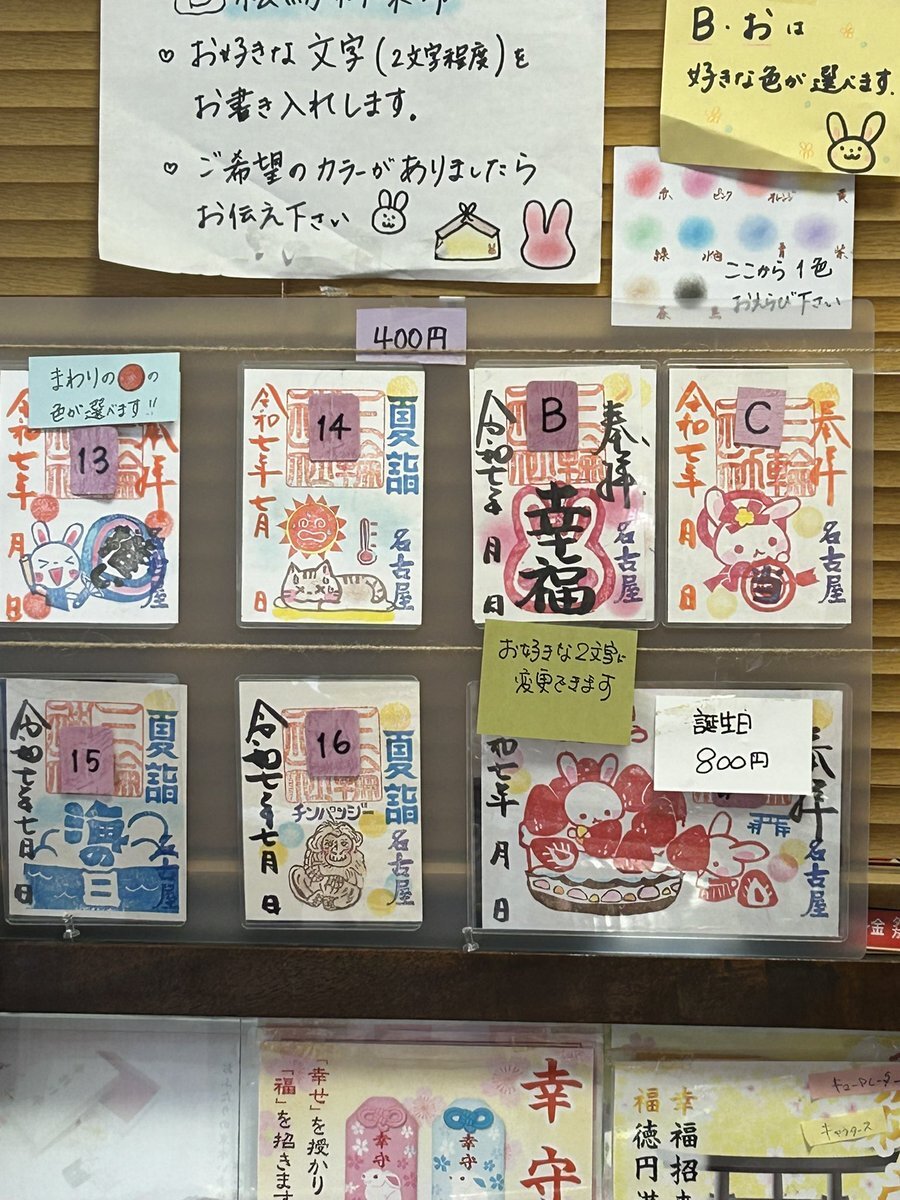 お好きな文字(2文字程度)を
お書き入れします。
ご希望のカラーがありましたら
お伝え下さい
B・おは
好きな色が選べます.
赤 ピンク オレンジ 黄
緑 水色 青 紫
茶 黒
ここから1色
おえらび下さい
400円
まわりの の
色が選べます!!
13
奉拝
令和七年
月
日
名古屋
14
夏詣
令和七年七月
日
名古屋
B
奉拝
幸福
令和七年
月
日
名古屋
C
奉拝
三輪神社
令和七年
月
日
名古屋
お好きな2文字に
変更できます
15
夏詣
海の日
令和七年七月
日
名古屋
16
夏詣
チンパンジー
令和七年七月
日
名古屋
誕生日
800円
奉拝
和七年
月
日
名古屋
幸守
「幸せ」を授かり
「福」を招きます
幸守
幸守
幸福招
福徳円満
キャラクターズ